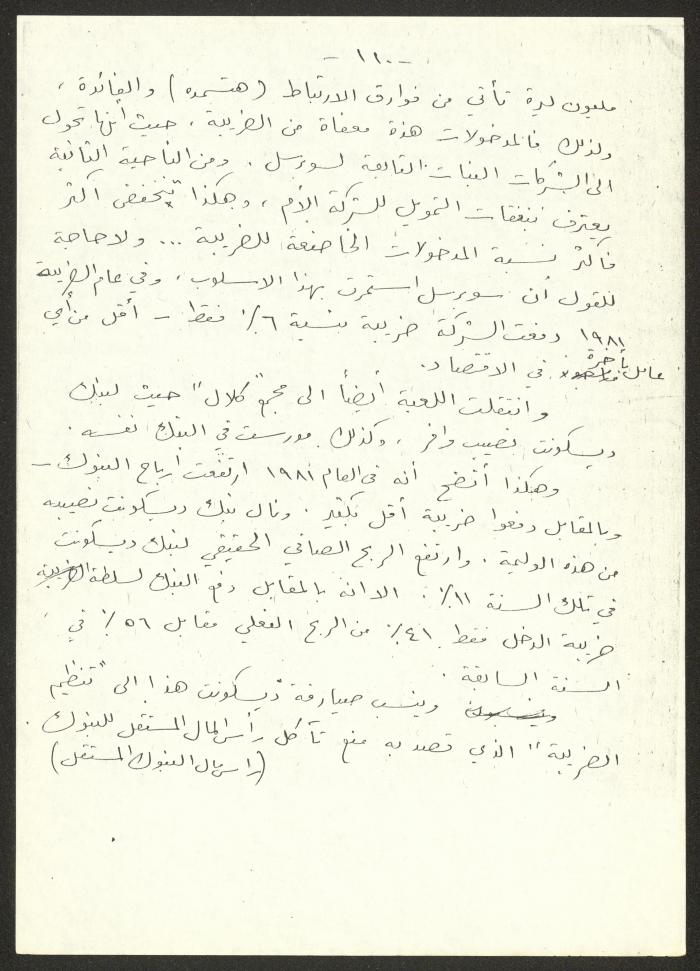 - ١١٠ -
مليون ليرة تأتي من فوارق الارتباط (هتسمده) والفائدة ،
ولذلك فالمدخولات هذة معفاة من الضريبة ، حيث أنها تحول
الى الشركات البنات التابعة لسوبرسل . ومن الناحية الثانية
يعترف بنفقات التمويل للشركة الأم ، وهكذا تنخفض اكثر
فأكثر نسبة المدخولات الخاضعة للضريبة ... ولا حاجة
للقول أن سوبرسل استمرت بهذا الاسلوب ، وفي عام الضريبة
١٩٨١ دفعت الشركة ضريبة بنسبة ٦٪ فقط - أقل من أي
عامل بأجرة في الاقتصاد .
وانتقلت اللعبة أيضاً الى مجمع "كلال" حيث لبنك
ديسكونت نصيب وافر ، وكذلك مورست في البنك نفسه .
وهكذا أتضح أنه في العام ١٩٨١ ارتفعت أرباح البنوك -
وبالمقابل دفعوا ضريبة أقل بكثير . ونال بنك ديسكونت نصيبه
من هذه الوليمة . وارتفع الربح الصافي الحقيقي لبنك ديسكونت
في تلك السنة ١١٪ . الا انه بالمقابل دفع البنك لسلطة الضريبة
ضريبة الدخل فقط ٤١٪ من الربح الفعلي مقابل ٥٦٪ في
السنة السابقة .
وينسب صيارفة ديسكونت هذا الى "تنظيم
الضريبة" الذي قصد به منع تآكل رأس المال المستقل للبنوك .
(راس مال البنوك المستقل)